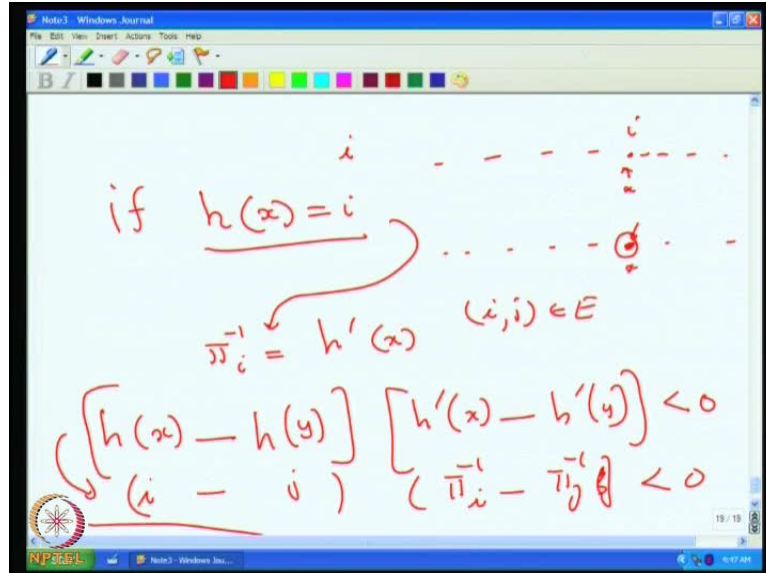 Note3 - Windows Journal
File Edit View Insert Actions Tools Help
B I
i i
if h(x) = i
π⁻¹ᵢ = h'(x) (i,j) ∈ E
[h(x) — h(y)] [h'(x) — h'(y)] < 0
(i — j) (π⁻¹ᵢ — π⁻¹ⱼ) < 0
19 / 19
NPTEL Note3 - Windows Jou...